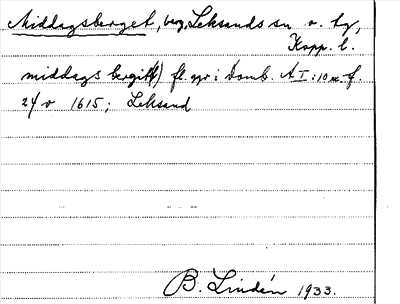 Middagsberget, berg, Leksands sn o. tg,
Kopp. l.
middags bergit(t) fl. ggr i Domb. A I: 10 a f.
24 v 1615; Leksand
B. Lindén 1933.